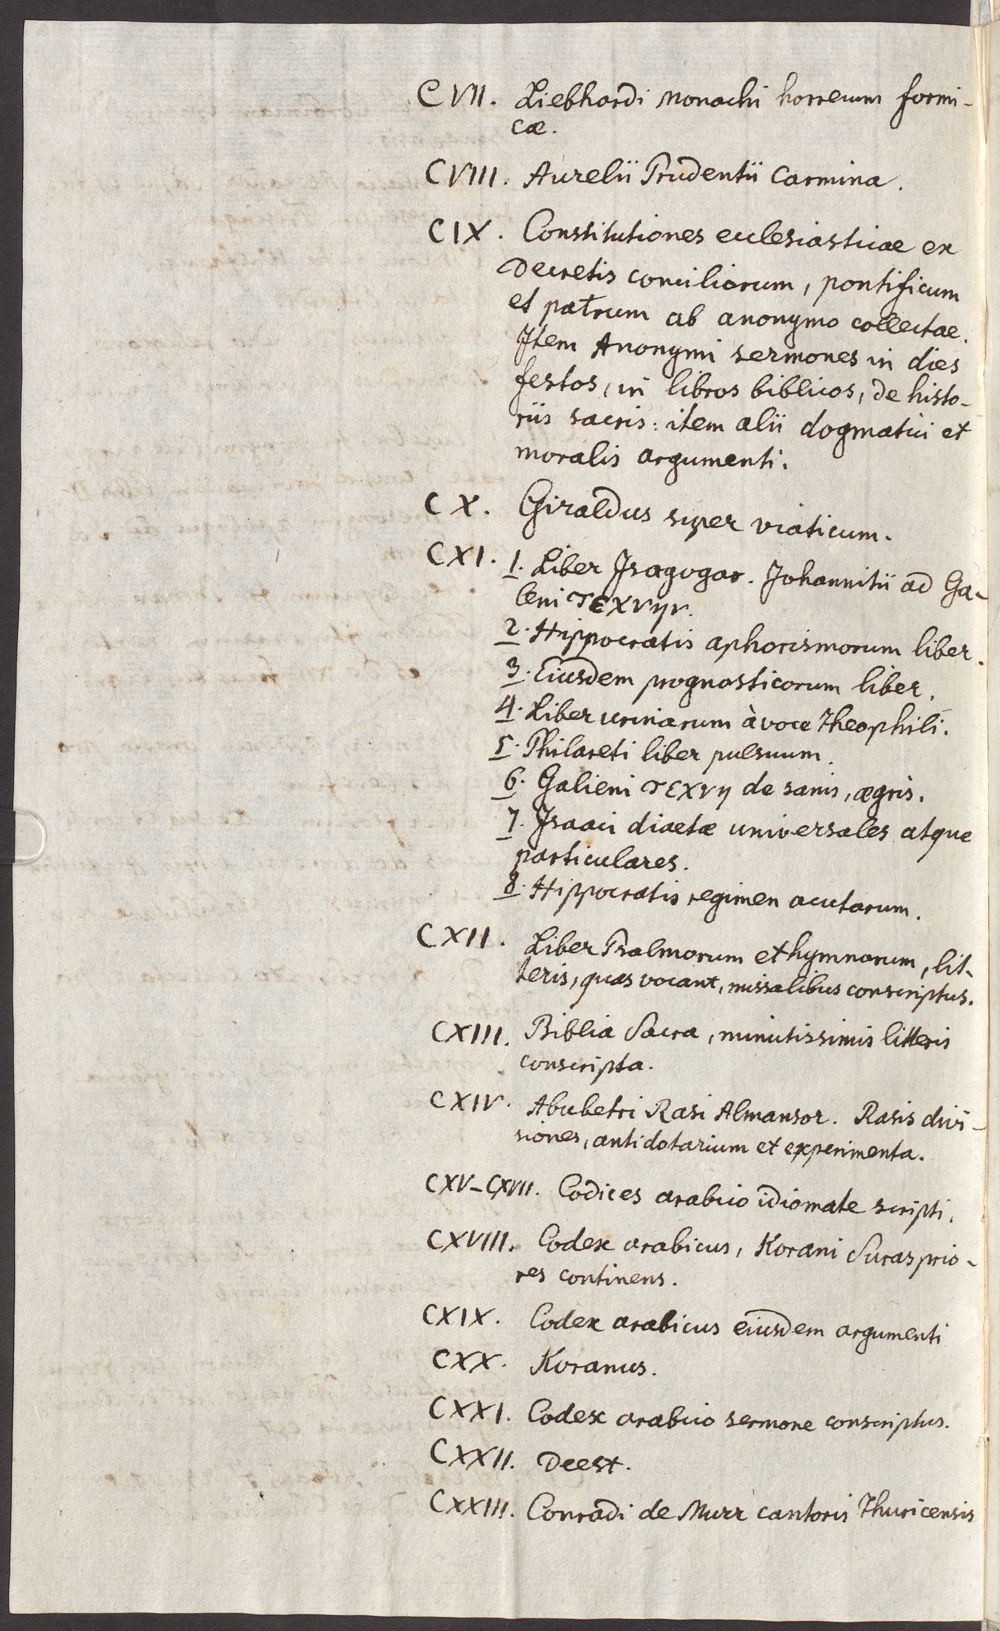 CVII. Liebhardi Monachi horreum formi-
cæ.
CVIII. Aurelii Prudentii Carmina.
CIX. Constitutiones ecclesiasticae ex
Decretis conciliorum, pontificum
et patrum ab anonymo collectae.
Item Anonymi sermones in dies
festos, in libros biblicos, de histo-
riis sacris: item alii dogmatici et
moralis argumenti.
CX. Giraldus super viaticum.
CXI. 1. Liber Isagogar. Johannitii ad Ga-
leni τεχνην.
2. Hippocratis aphorismorum liber.
3. Eiusdem prognosticorum liber.
4. Liber urinarum à voce Theophili.
5. Philareti liber pulsuum.
6. Galieni τεχνη de sanis, ægris.
7. Isaaci diaetæ universales atque
particulares.
8. Hippocratis regimen acutarum.
CXII. Liber Psalmorum et hymnorum, lit-
teris, quas vocant, missalibus conscriptus.
CXIII. Biblia Sacra, minutissimis litteris
conscripta.
CXIV. Abubetri Rasi Almansor. Rasis divi-
siones, antidotarium et experimenta.
CXV-CXVII. Codices arabico idiomate scripti.
CXVIII. Codex arabicus, Korani Suras prio-
res continens.
CXIX. Codex arabicus eiusdem argumenti
CXX. Koranus.
CXXI. Codex arabico sermone conscriptus.
CXXII. Deest.
CXXIII. Conradi de Murr cantoris Thuricensis